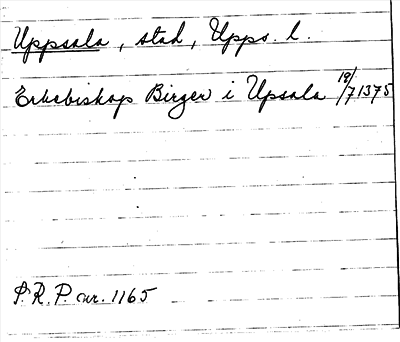 Uppsala, stad, Upps. l.
Erkebiskop Birger i Upsala 19/7 1375
P.R.P. nr. 1165